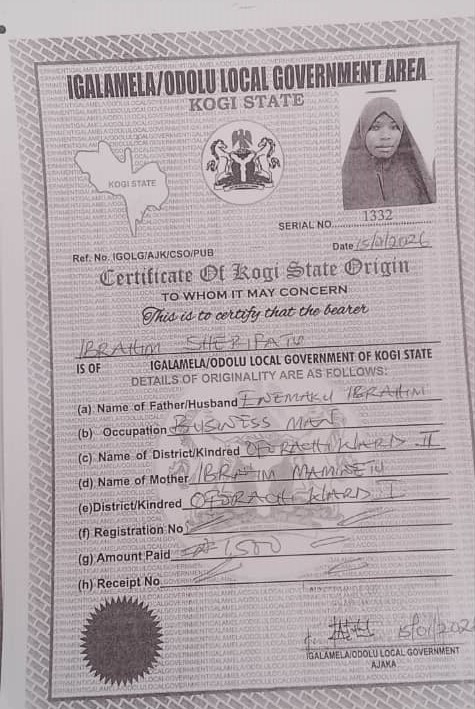 IGALAMELA/ODOLU LOCAL GOVERNMENT AREA
KOGI STATE
KOGI STATE
SERIAL NO. 1332
Ref. No. IGOLG/AJK/CSO/PUB
Date
Certificate Of Kogi State Origin
TO WHOM IT MAY CONCERN
This is to certify that the bearer
IBRAHIM SHERIFATU
IS OF IGALAMELA/ODOLU LOCAL GOVERNMENT OF KOGI STATE
DETAILS OF ORIGINALITY ARE AS FOLLOWS:
(a) Name of Father/Husband ENEMAKU IBRAHIM
(b) Occupation BUSINESS MAN
(c) Name of District/Kindred WARD II
(d) Name of Mother IBRAHIM
(e) District/Kindred WARD I
(f) Registration No
(g) Amount Paid 1,500
(h) Receipt No
IGALAMELA/ODOLU LOCAL GOVERNMENT
AJAKA